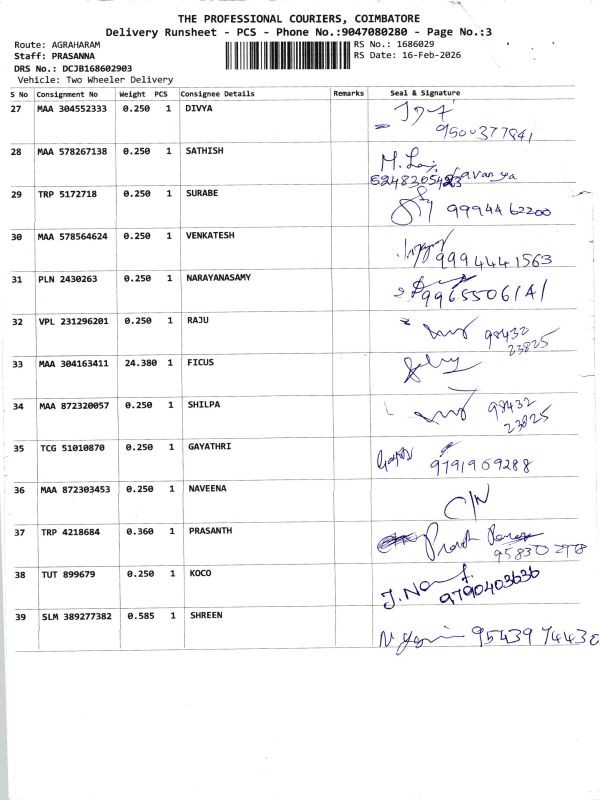 THE PROFESSIONAL COURIERS, COIMBATORE
Delivery Runsheet - PCS - Phone No.:9047080280 - Page No.:3
Route: AGRAHARAM RS No.: 1686029
Staff: PRASANNA RS Date: 16-Feb-2026
DRS No.: DCJB168602903
Vehicle: Two Wheeler Delivery
S No Consignment No Weight PCS Consignee Details Remarks Seal & Signature
27 MAA 304552333 0.250 1 DIVYA
9500377841
28 MAA 578267138 0.250 1 SATHISH
Lavanya
29 TRP 5172718 0.250 1 SURABE
9994462200
30 MAA 578564624 0.250 1 VENKATESH
9994441563
31 PLN 2430263 0.250 1 NARAYANASAMY
9965506141
32 VPL 231296201 0.250 1 RAJU
98432
23825
33 MAA 304163411 24.380 1 FICUS
34 MAA 872320057 0.250 1 SHILPA
98432
23825
35 TCG 51010870 0.250 1 GAYATHRI
9791969288
36 MAA 872303453 0.250 1 NAVEENA
C/N
37 TRP 4218684 0.360 1 PRASANTH
38 TUT 899679 0.250 1 KOCO
9790403636
39 SLM 389277382 0.585 1 SHREEN
9543974430